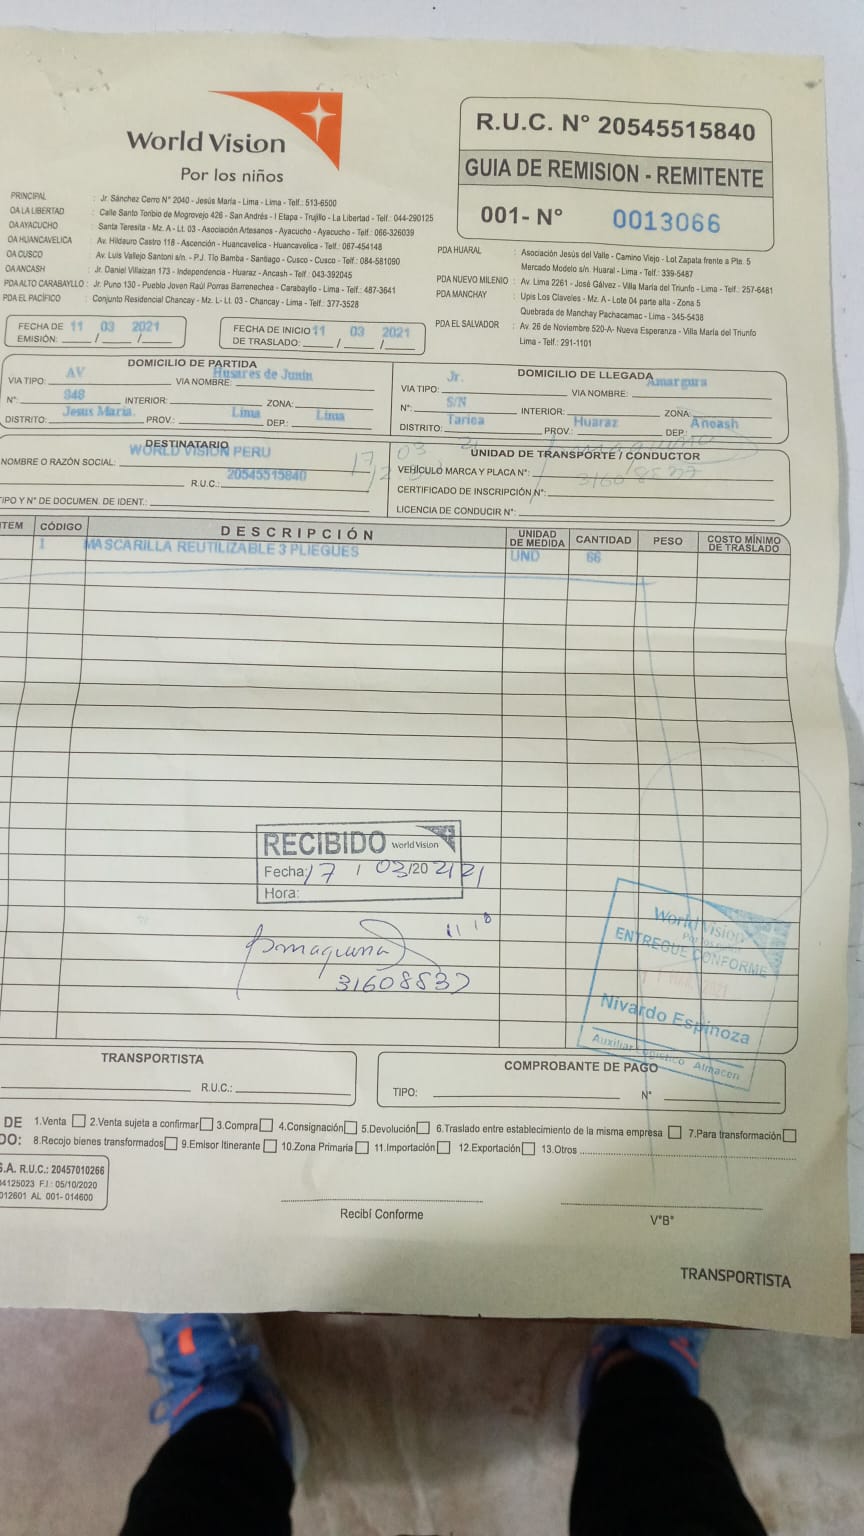 World Vision
Por los niños
R.U.C. N° 20545515840
GUIA DE REMISION - REMITENTE
001- N° 0013066
PRINCIPAL : Jr. Sánchez Cerro N° 2040 - Jesús María - Lima - Lima - Telf.: 513-6500
OA LA LIBERTAD : Calle Santo Toribio de Mogrovejo 426 - San Andrés - I Etapa - Trujillo - La Libertad - Telf.: 044-290125
OA AYACUCHO : Santa Teresita - Mz. A - Lt. 03 - Asociación Artesanos - Ayacucho - Ayacucho - Telf.: 066-326039
OA HUANCAVELICA : Av. Hildauro Castro 118 - Ascención - Huancavelica - Huancavelica - Telf.: 067-454148
OA CUSCO : Av. Luis Vallejo Santoni s/n. - P.J. Tío Bamba - Santiago - Cusco - Cusco - Telf.: 084-581090
OA ANCASH : Jr. Daniel Villaizan 173 - Independencia - Huaraz - Ancash - Telf.: 043-392045
PDA ALTO CARABAYLLO : Jr. Puno 130 - Pueblo Joven Raúl Porras Barrenechea - Carabayllo - Lima - Telf.: 487-3641
PDA EL PACÍFICO : Conjunto Residencial Chancay - Mz. L- Lt. 03 - Chancay - Lima - Telf.: 377-3528
PDA HUARAL : Asociación Jesús del Valle - Camino Viejo - Lot Zapata frente a Pte. 5
Mercado Modelo s/n. Huaral - Lima - Telf.: 339-5487
PDA NUEVO MILENIO : Av. Lima 2261 - José Gálvez - Villa María del Triunfo - Lima - Telf.: 257-6481
PDA MANCHAY : Upis Los Claveles - Mz. A - Lote 04 parte alta - Zona 5
Quebrada de Manchay Pachacamac - Lima - 345-5438
PDA EL SALVADOR : Av. 26 de Noviembre 520-A- Nueva Esperanza - Villa María del Triunfo
Lima - Telf.: 291-1101
FECHA DE EMISIÓN: 11 / 03 / 2021
FECHA DE INICIO DE TRASLADO: 11 / 03 / 2021
DOMICILIO DE PARTIDA
VIA TIPO: AV VIA NOMBRE: Husares de Junin
N°: 948 INTERIOR: ZONA:
DISTRITO: Jesus Maria. PROV.: Lima DEP.: Lima
DOMICILIO DE LLEGADA
VIA TIPO: Jr. VIA NOMBRE: Amargura
N°: S/N INTERIOR: ZONA:
DISTRITO: Tarica PROV.: Huaraz DEP.: Ancash
DESTINATARIO
NOMBRE O RAZÓN SOCIAL: WORLD VISION PERU
R.U.C.: 20545515840
TIPO Y N° DE DOCUMEN. DE IDENT.:
17 03 21
UNIDAD DE TRANSPORTE / CONDUCTOR
VEHÍCULO MARCA Y PLACA N°: 31608537
CERTIFICADO DE INSCRIPCIÓN N°:
LICENCIA DE CONDUCIR N°:
ITEM CÓDIGO DESCRIPCIÓN UNIDAD DE MEDIDA CANTIDAD PESO COSTO MÍNIMO DE TRASLADO
1 MASCARILLA REUTILIZABLE 3 PLIEGUES UND 66
RECIBIDO World Vision
Fecha: 17 / 03/20 21 21
Hora:
11 18
31608537
World Vision
Por los niños
ENTREGUE CONFORME
11 MAR. 2021
Nivardo Espinoza
Auxiliar Logístico Almacen
TRANSPORTISTA
R.U.C.:
COMPROBANTE DE PAGO
TIPO: N°
DE 1.Venta 2.Venta sujeta a confirmar 3.Compra 4.Consignación 5.Devolución 6.Traslado entre establecimiento de la misma empresa 7.Para transformación
DO: 8.Recojo bienes transformados 9.Emisor Itinerante 10.Zona Primaria 11.Importación 12.Exportación 13.Otros
S.A. R.U.C.: 20457010266
04125023 F.I.: 05/10/2020
012601 AL 001- 014600
Recibí Conforme
V°B°
TRANSPORTISTA